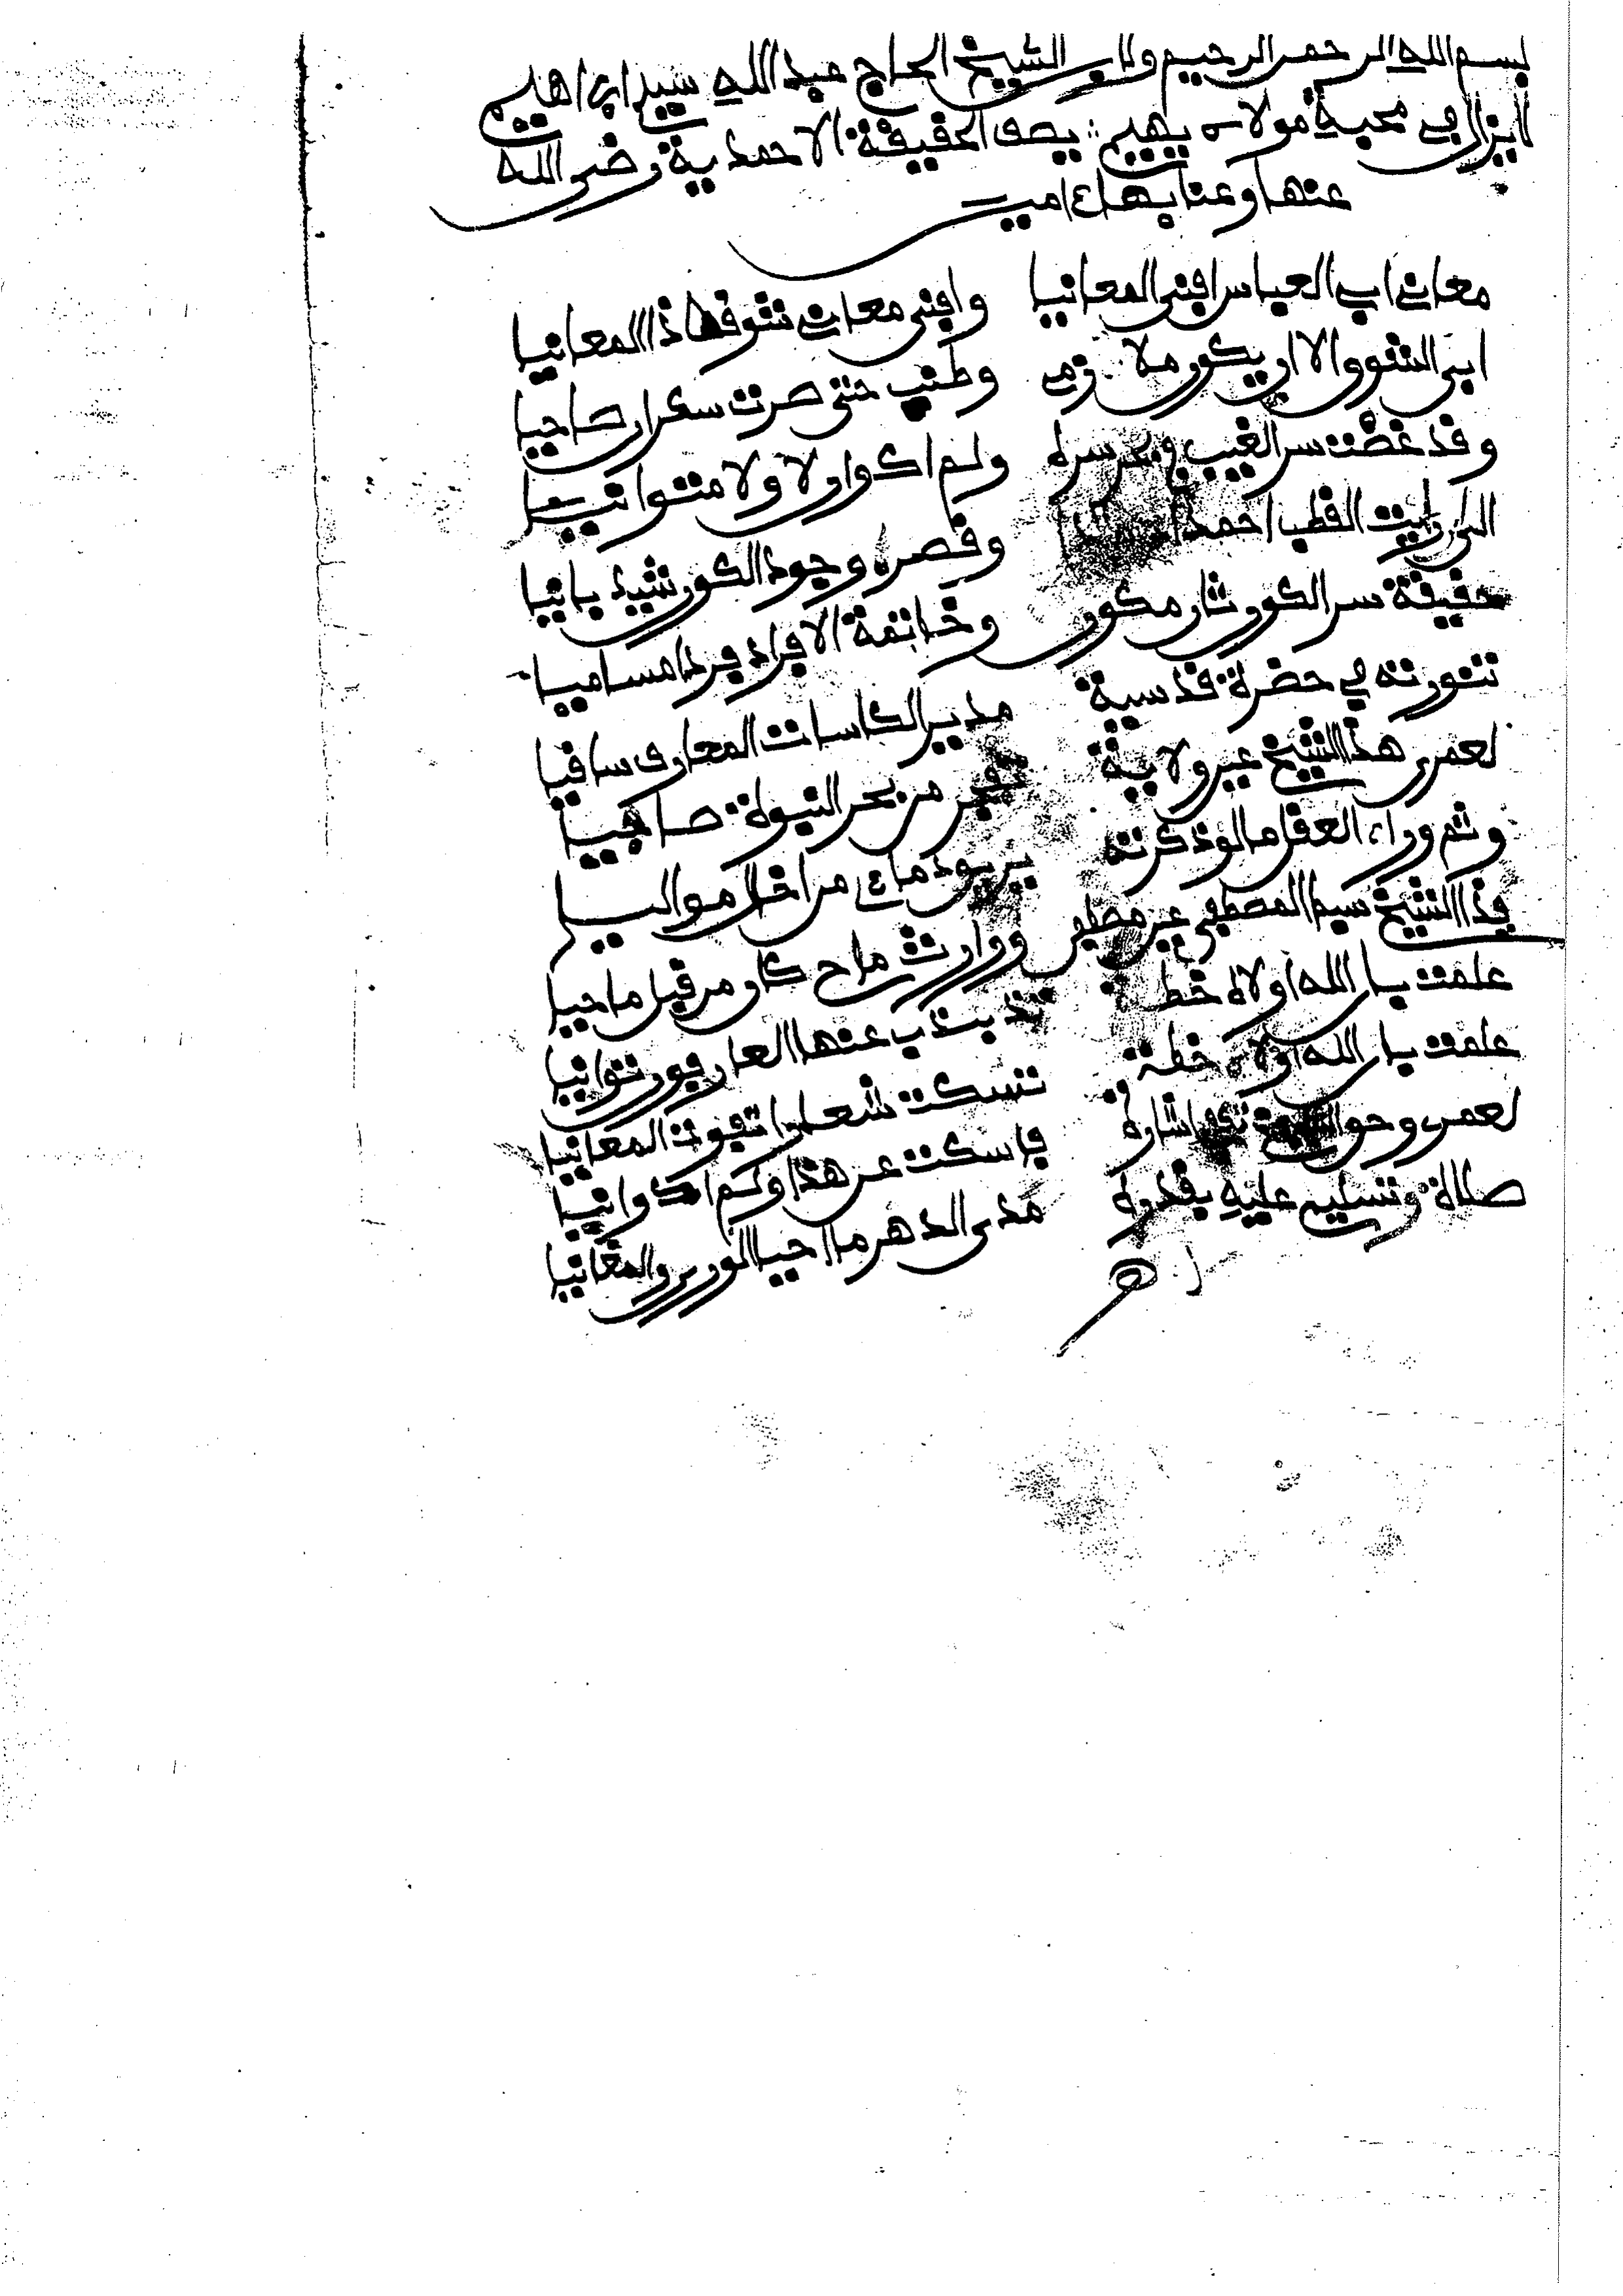 بسم الله الرحمن الرحيم ولابن الشيخ الحاج عبد الله سيد ابراهيم
الذي في محبة مولاه يهيم يصف الحقيقة الاحمدية رضى الله
عنها وعنا بها ءامين
معاني ابي العباس افنى المعانيا وافنى معاني شوق هاذا المعانيا
ابى الشوق الا ان يكون ملازمي وطني حتى صرت سكران صاحيا
وقد غصت سر الغيب في بحر سره ولم اك وان لا ولا متوانيا
الى ان رايت القطب احمد وقصره وجود الكون شيد بانيا
حقيقة سر الكون ثان مكون وخاتمة الافراد فردا مساميا
تنورته في حضرة قدسية مدير الكاسات المعارف ساقيا
لعمري هذا الشيخ عين ولاية تفجر من بحر النبوة صافيا
وثم وراء العقل ما لو ذكرته يريد دماءي من اخال مواليا
فذا الشيخ سيم المصطفى عين مظهر ووارث ماح كان من قبل ماحيا
علمت بان الله اولاه خطة تذبذب عنها العارفون توانيا
علمت بان الله اولاه خطة تسكت شعارا تفوت المعانيا
لعمري وحق الشيخ تكفي اشارة فاسكت عن هذا ولم اك وانيا
صلاة وتسليم عليه بقدره مدى الدهر ما احيا الورى والمغانيا
اهـ